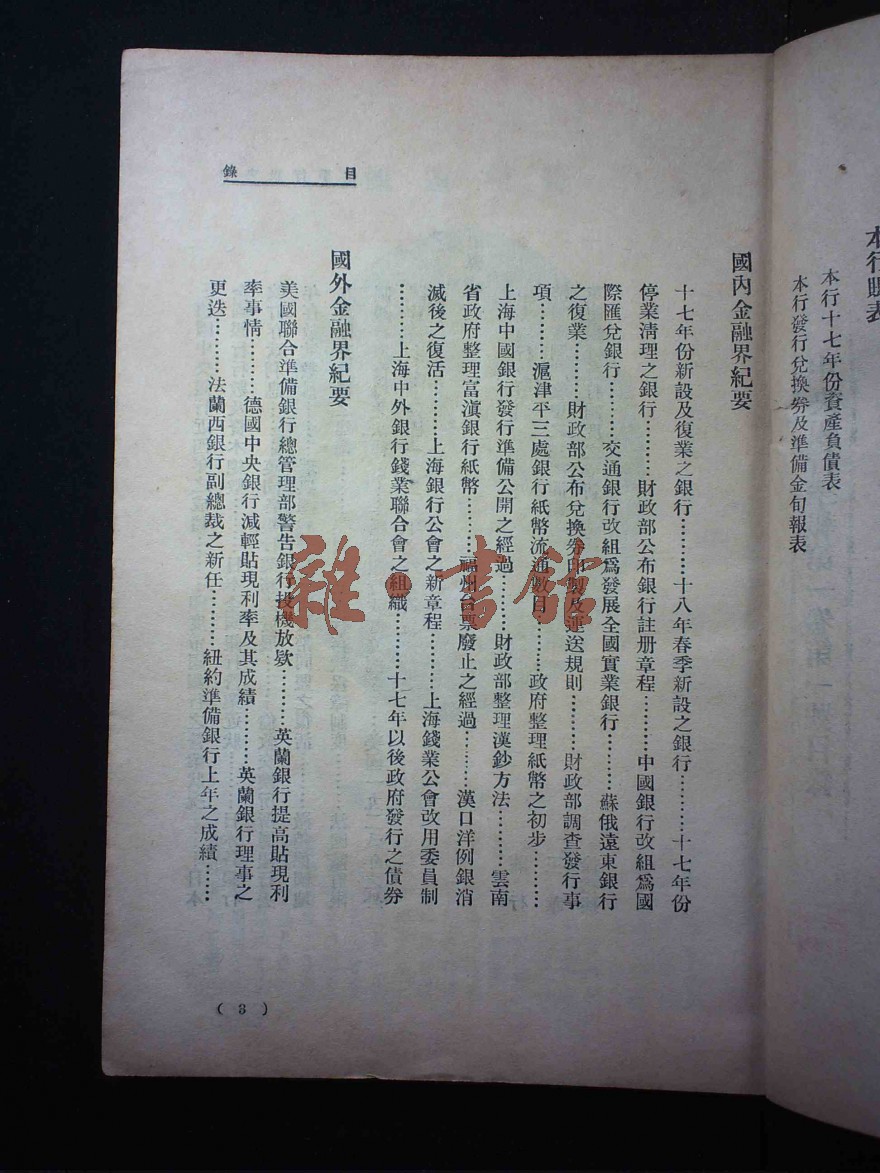 本行十七年份資產負債表
本行發行兌換券及準備金旬報表
目錄
國內金融界紀要
十七年份新設及復業之銀行………十八年春季新設之銀行………十七年份
停業淸理之銀行………財政部公布銀行註册章程………中國銀行改組爲國
際匯兌銀行………交通銀行改組爲發展全國實業銀行………蘇俄遠東銀行
之復業………財政部公布兌換券印製及運送規則………財政部調查發行事
項………滬津平三處銀行紙幣流通數目………政府整理紙幣之初步………
上海中國銀行發行準備公開之經過………財政部整理漢鈔方法………雲南
省政府整理富滇銀行紙幣………福州台票廢止之經過………漢口洋例銀消
滅後之復活………上海銀行公會之新章程………上海錢業公會改用委員制
………上海中外銀行錢業聯合會之組織………十七年以後政府發行之債券
國外金融界紀要
美國聯合準備銀行總管理部警告銀行投機放欵………英蘭銀行提高貼現利
率事情………德國中央銀行減輕貼現利率及其成績………英蘭銀行理事之
更迭………法蘭西銀行副總裁之新任………紐約準備銀行上年之成績………
(3)
雜·書館